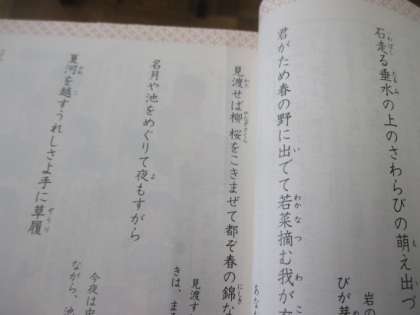 石走る垂水の上のさわらびの萌え出づ
君がため春の野に出でて若菜摘む我が
見渡せば柳桜をこきまぜて都ぞ春の錦な
名月や池をめぐりて夜もすがら
夏河を越すうれしさよ手に草履
岩の
びが芽
あな
見渡す
きは、ま
今夜は中
ながら、池